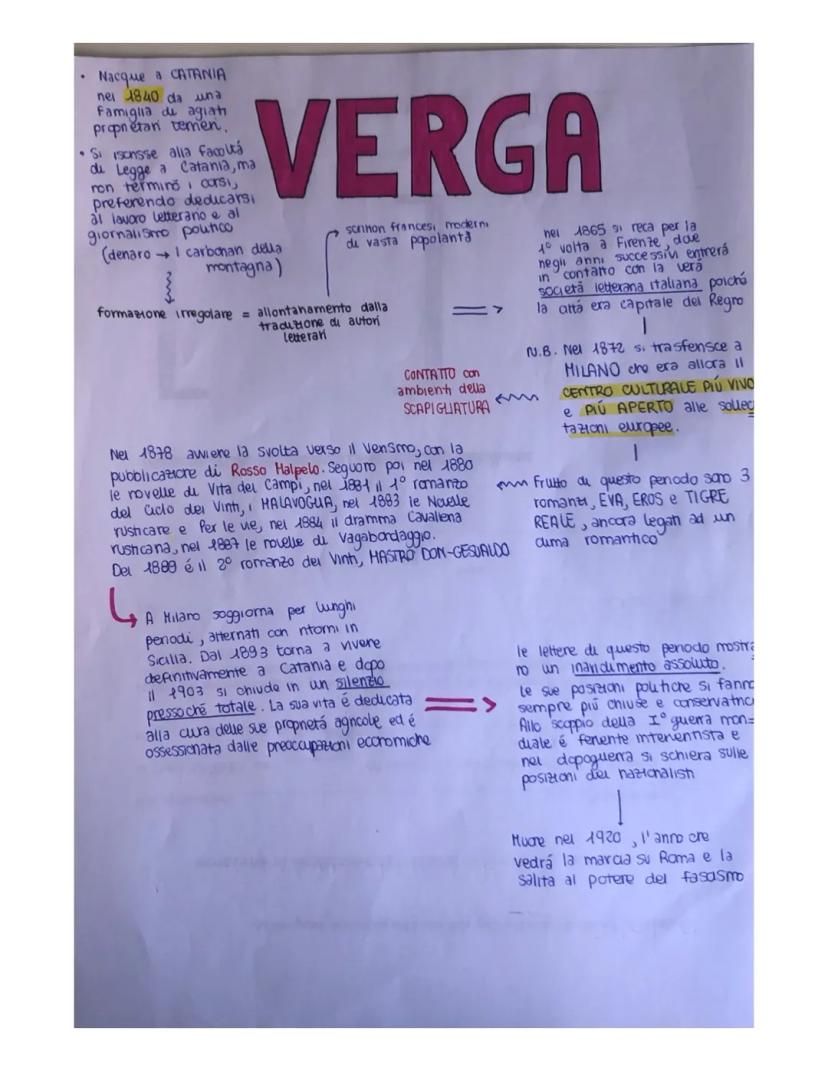 VERGA
• Nacque a CATANIA
nel 1840 da una
famiglia di agiati
proprietari terrieri.
• Si iscrisse alla facoltá
di Legge a Catania, ma
non terminó i corsi,
preferendo dedicarsi
al lavoro letterario e al
giornalismo politico
(denaro → I carbonari della
montagna)
formazione irregolare = allontanamento dalla
traduzione di autori
letterari
scrittori francesi moderni
di vasta popolaritá
nel 1865 si reca per la
1° volta a Firenze, dove
negli anni successivi entrerá
in contatto con la vera
societá letteraria italiana poiché
la cittá era capitale del Regno
N.B. Nel 1872 si trasferisce a
MILANO che era allora il
CENTRO CULTURALE PIÚ VIVO
e PIÚ APERTO alle sollec
tazioni europee.
CONTATTO con
ambienti della
SCAPIGLIATURA
Frutto di questo periodo sono 3
romanzi, EVA, EROS e TIGRE
REALE, ancora legati ad un
clima romantico
Nel 1878 avviene la svolta verso il Verismo, con la
pubblicazione di Rosso Malpelo. Seguoro poi nel 1880
le novelle di Vita dei Campi, nel 1881 il 1° romanzo
del Ciclo dei Vinti, i MALAVOGLIA, nel 1883 le Novelle
rusticane e Per le vie, nel 1884 il dramma Cavalleria
rusticana, nel 1887 le novelle di Vagabondaggio.
Del 1889 é il 2° romanzo dei Vinti, MASTRO DON-GESUALDO
A Milano soggiorna per lunghi
periodi, alternati con ritorni in
Sicilia. Dal 1893 torna a vivere
definitivamente a Catania e dopo
il 1903 si chiude in un silenzio
pressoché totale. La sua vita é dedicata
alla cura delle sue proprietá agricole ed é
ossessionata dalle preoccupazioni economiche
le lettere di questo periodo mostra
no un inaridimento assoluto.
Le sue posizioni politiche si fanno
sempre piú chiuse e conservatric
Allo scoppio della I° guerra mon=
diale é fervente interventista e
nel dopoguerra si schiera sulle
posizioni dei nazionalisti
Muore nel 1920, l'anno che
vedrá la marcia su Roma e la
salita al potere del fascismo